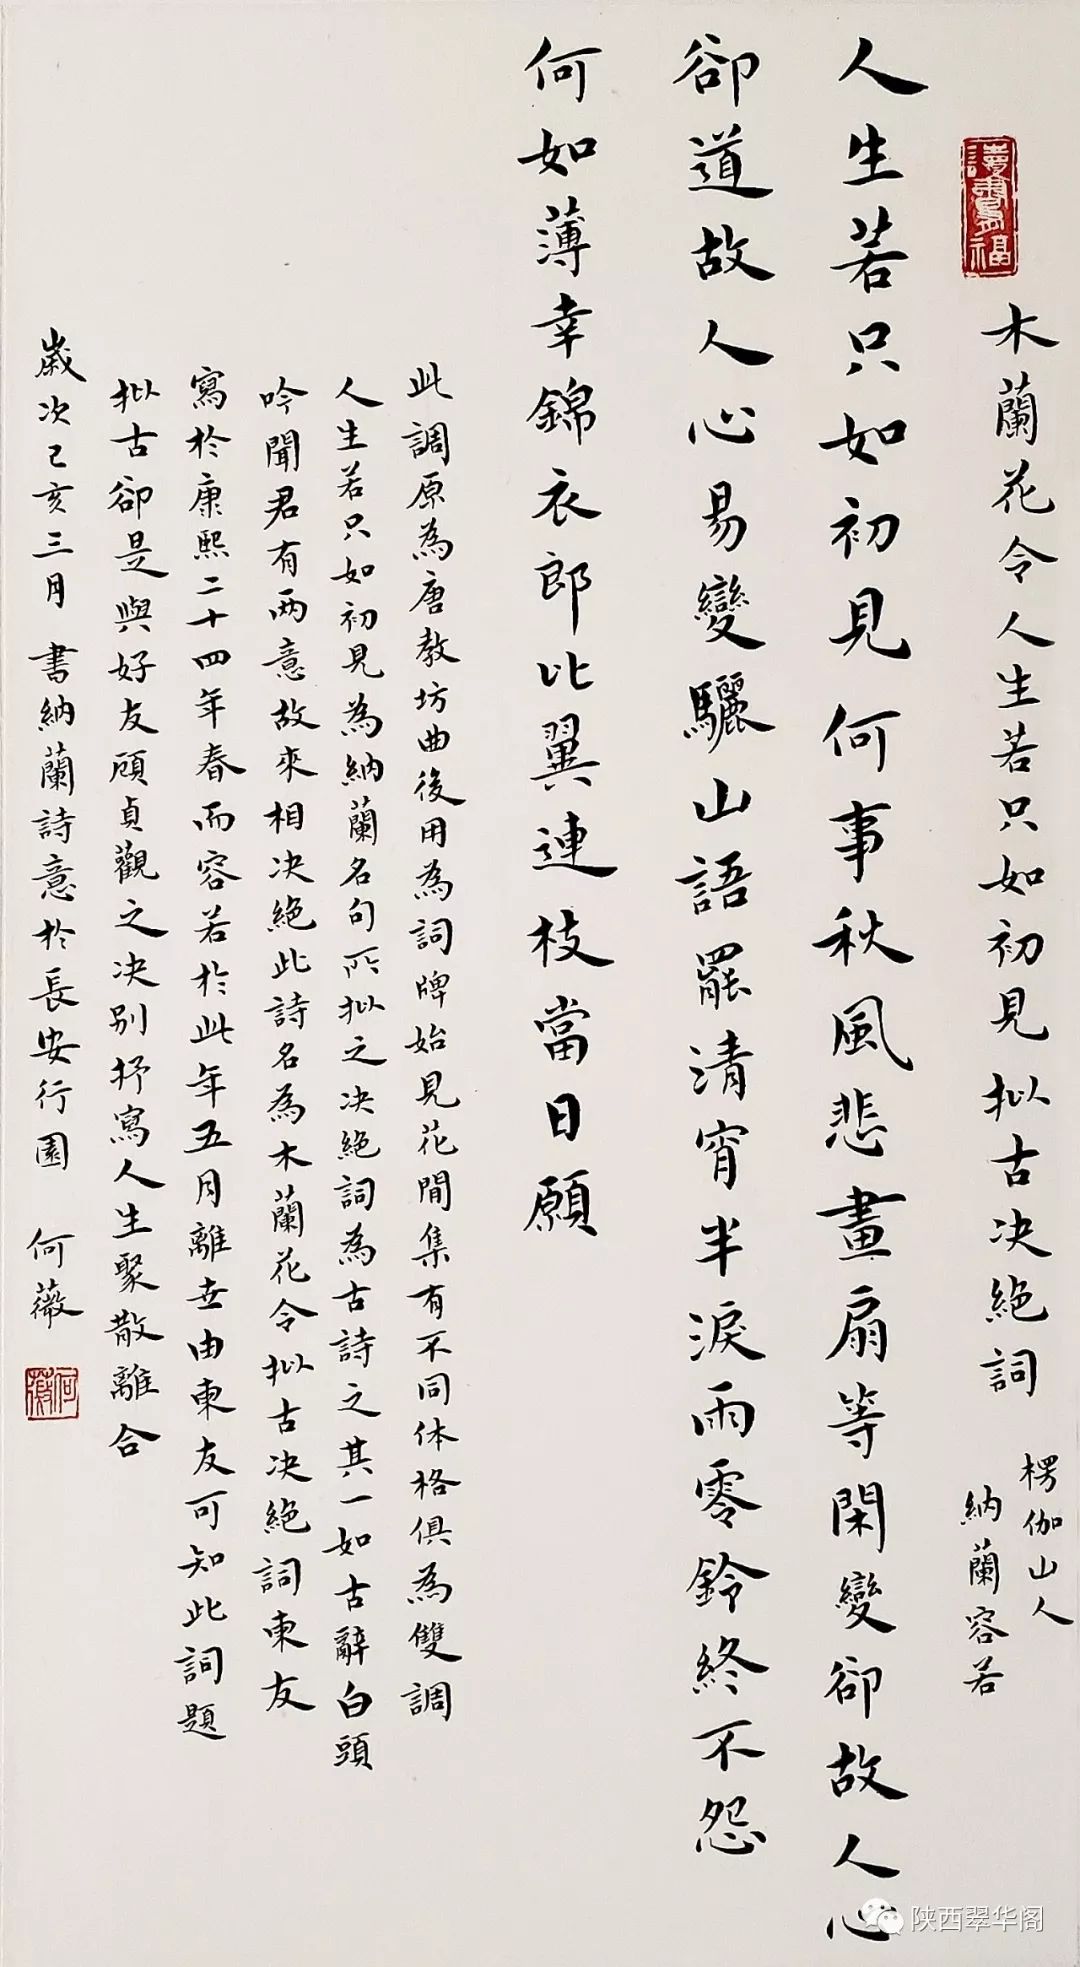 讀書為福
木蘭花令人生若只如初見拟古决絕詞
楞伽山人
納蘭容若
人生若只如初見何事秋風悲畫扇等閑變卻故人心
卻道故人心易變驪山語罷清宵半淚雨零鈴終不怨
何如薄幸錦衣郎比翼連枝當日願
此調原為唐教坊曲後用為詞牌始見花間集有不同体格俱為雙調
人生若只如初見為納蘭名句所拟之决絕詞為古詩之其一如古辭白頭
吟聞君有两意故來相决絕此詩名為木蘭花令拟古决絕詞柬友
寫於康熙二十四年春而容若於此年五月離世由柬友可知此詞題
拟古卻是與好友顾貞觀之决别抒寫人生聚散離合
歲次己亥三月 書納蘭詩意於長安行園 何薇
何薇
陕西翠华阁